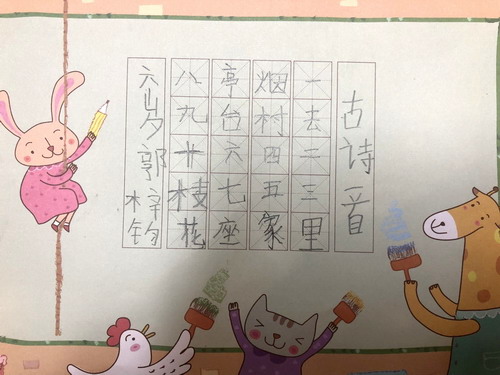 古诗一首
一去二三里
烟村四五家
亭台六七座
八九十枝花
六岁郭梓钧